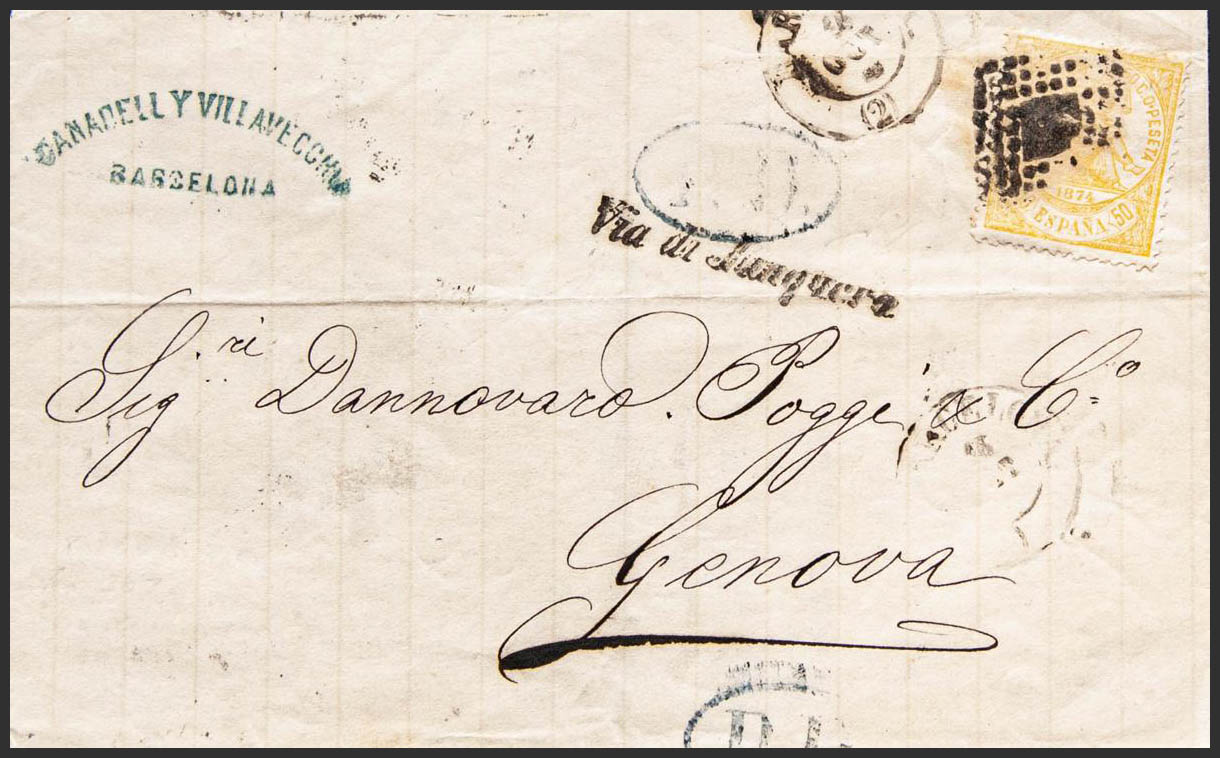 CANADELL Y VILLAVECCHIA
BARCELONA
(2)
P.D.
Via di Junquera
C.O PESETA
1874
ESPAÑA 50
Sig.ri Dannovaro. Poggi & Cº
Genova
P.D.